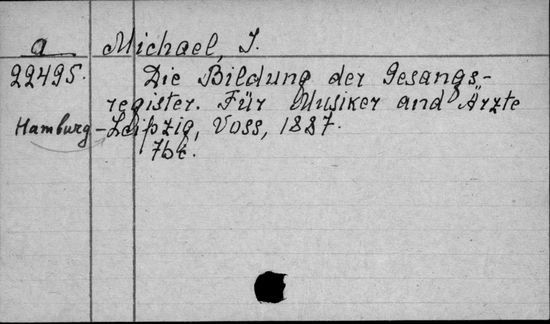 a Michael, I.
22495. Die Bildung der Gesangs-
register. Für Musiker and Ärzte
Hamburg - Leipzig, Voss, 1887.
76 l.